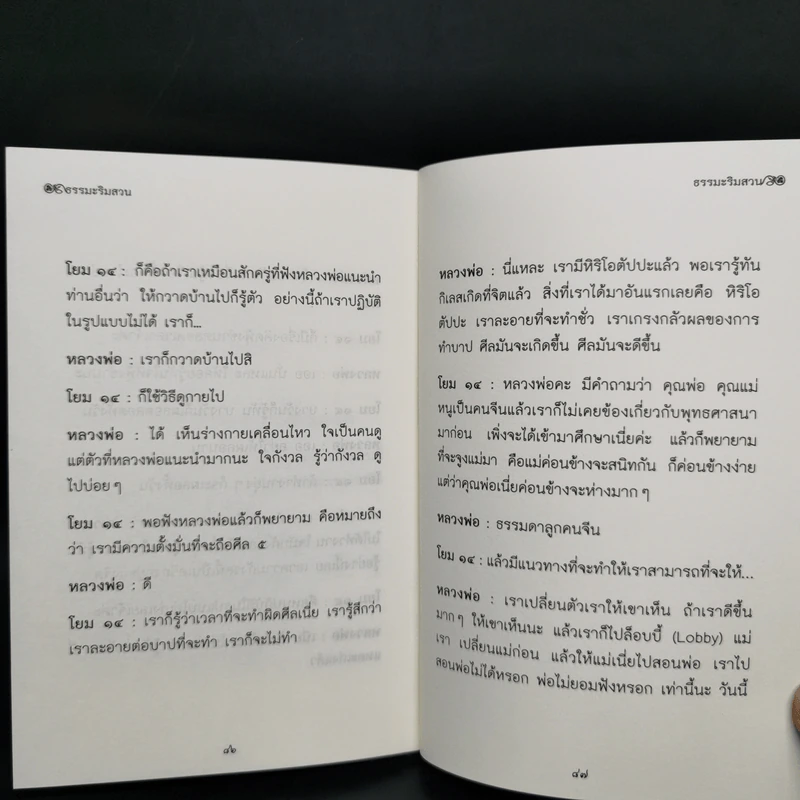 ธรรมะริมสวน
โยม ๑๔ : ก็คือถ้าเราเหมือนสักครู่ที่ฟังหลวงพ่อแนะนำ
ท่านอื่นว่า ให้กวาดบ้านไปก็รู้ตัว อย่างนี้ถ้าเราปฏิบัติ
ในรูปแบบไม่ได้ เราก็...
หลวงพ่อ : เราก็กวาดบ้านไปสิ
โยม ๑๔ : ก็ใช้วิธีดูกายไป
หลวงพ่อ : ได้ เห็นร่างกายเคลื่อนไหว ใจเป็นคนดู
แต่ตัวที่หลวงพ่อแนะนำมากนะ ใจกังวล รู้ว่ากังวล ดู
ไปบ่อยๆ
โยม ๑๔ : พอฟังหลวงพ่อแล้วก็พยายาม คือหมายถึง
ว่า เรามีความตั้งมั่นที่จะถือศีล ๕
หลวงพ่อ : ดี
โยม ๑๔ : เราก็รู้ว่าเวลาที่จะทำผิดศีลเนี่ย เรารู้สึกว่า
เราละอายต่อบาปที่จะทำ เราก็จะไม่ทำ
๘๖
ธรรมะริมสวน
หลวงพ่อ : นี่แหละ เรามีหิริโอตัปปะแล้ว พอเรารู้ทัน
กิเลสเกิดที่จิตแล้ว สิ่งที่เราได้มาอันแรกเลยคือ หิริโอ
ตัปปะ เราละอายที่จะทำชั่ว เราเกรงกลัวผลของการ
ทำบาป ศีลมันจะเกิดขึ้น ศีลมันจะดีขึ้น
โยม ๑๔ : หลวงพ่อคะ มีคำถามว่า คุณพ่อ คุณแม่
หนูเป็นคนจีนแล้วเราก็ไม่เคยข้องเกี่ยวกับพุทธศาสนา
มาก่อน เพิ่งจะได้เข้ามาศึกษาเนี่ยค่ะ แล้วก็พยายาม
ที่จะจูงแม่มา คือแม่ค่อนข้างจะสนิทกัน ก็ค่อนข้างง่าย
แต่ว่าคุณพ่อเนี่ยค่อนข้างจะห่างมากๆ
หลวงพ่อ : ธรรมดาลูกคนจีน
โยม ๑๔ : แล้วมีแนวทางที่จะทำให้เราสามารถที่จะให้...
หลวงพ่อ : เราเปลี่ยนตัวเราให้เขาเห็น ถ้าเราดีขึ้น
มากๆ ให้เขาเห็นนะ แล้วเราก็ไปล็อบบี้ (Lobby) แม่
เรา เปลี่ยนแม่ก่อน แล้วให้แม่เนี่ยไปสอนพ่อ เราไป
สอนพ่อไม่ได้หรอก พ่อไม่ยอมฟังหรอก เท่านี้นะ วันนี้
๘๗